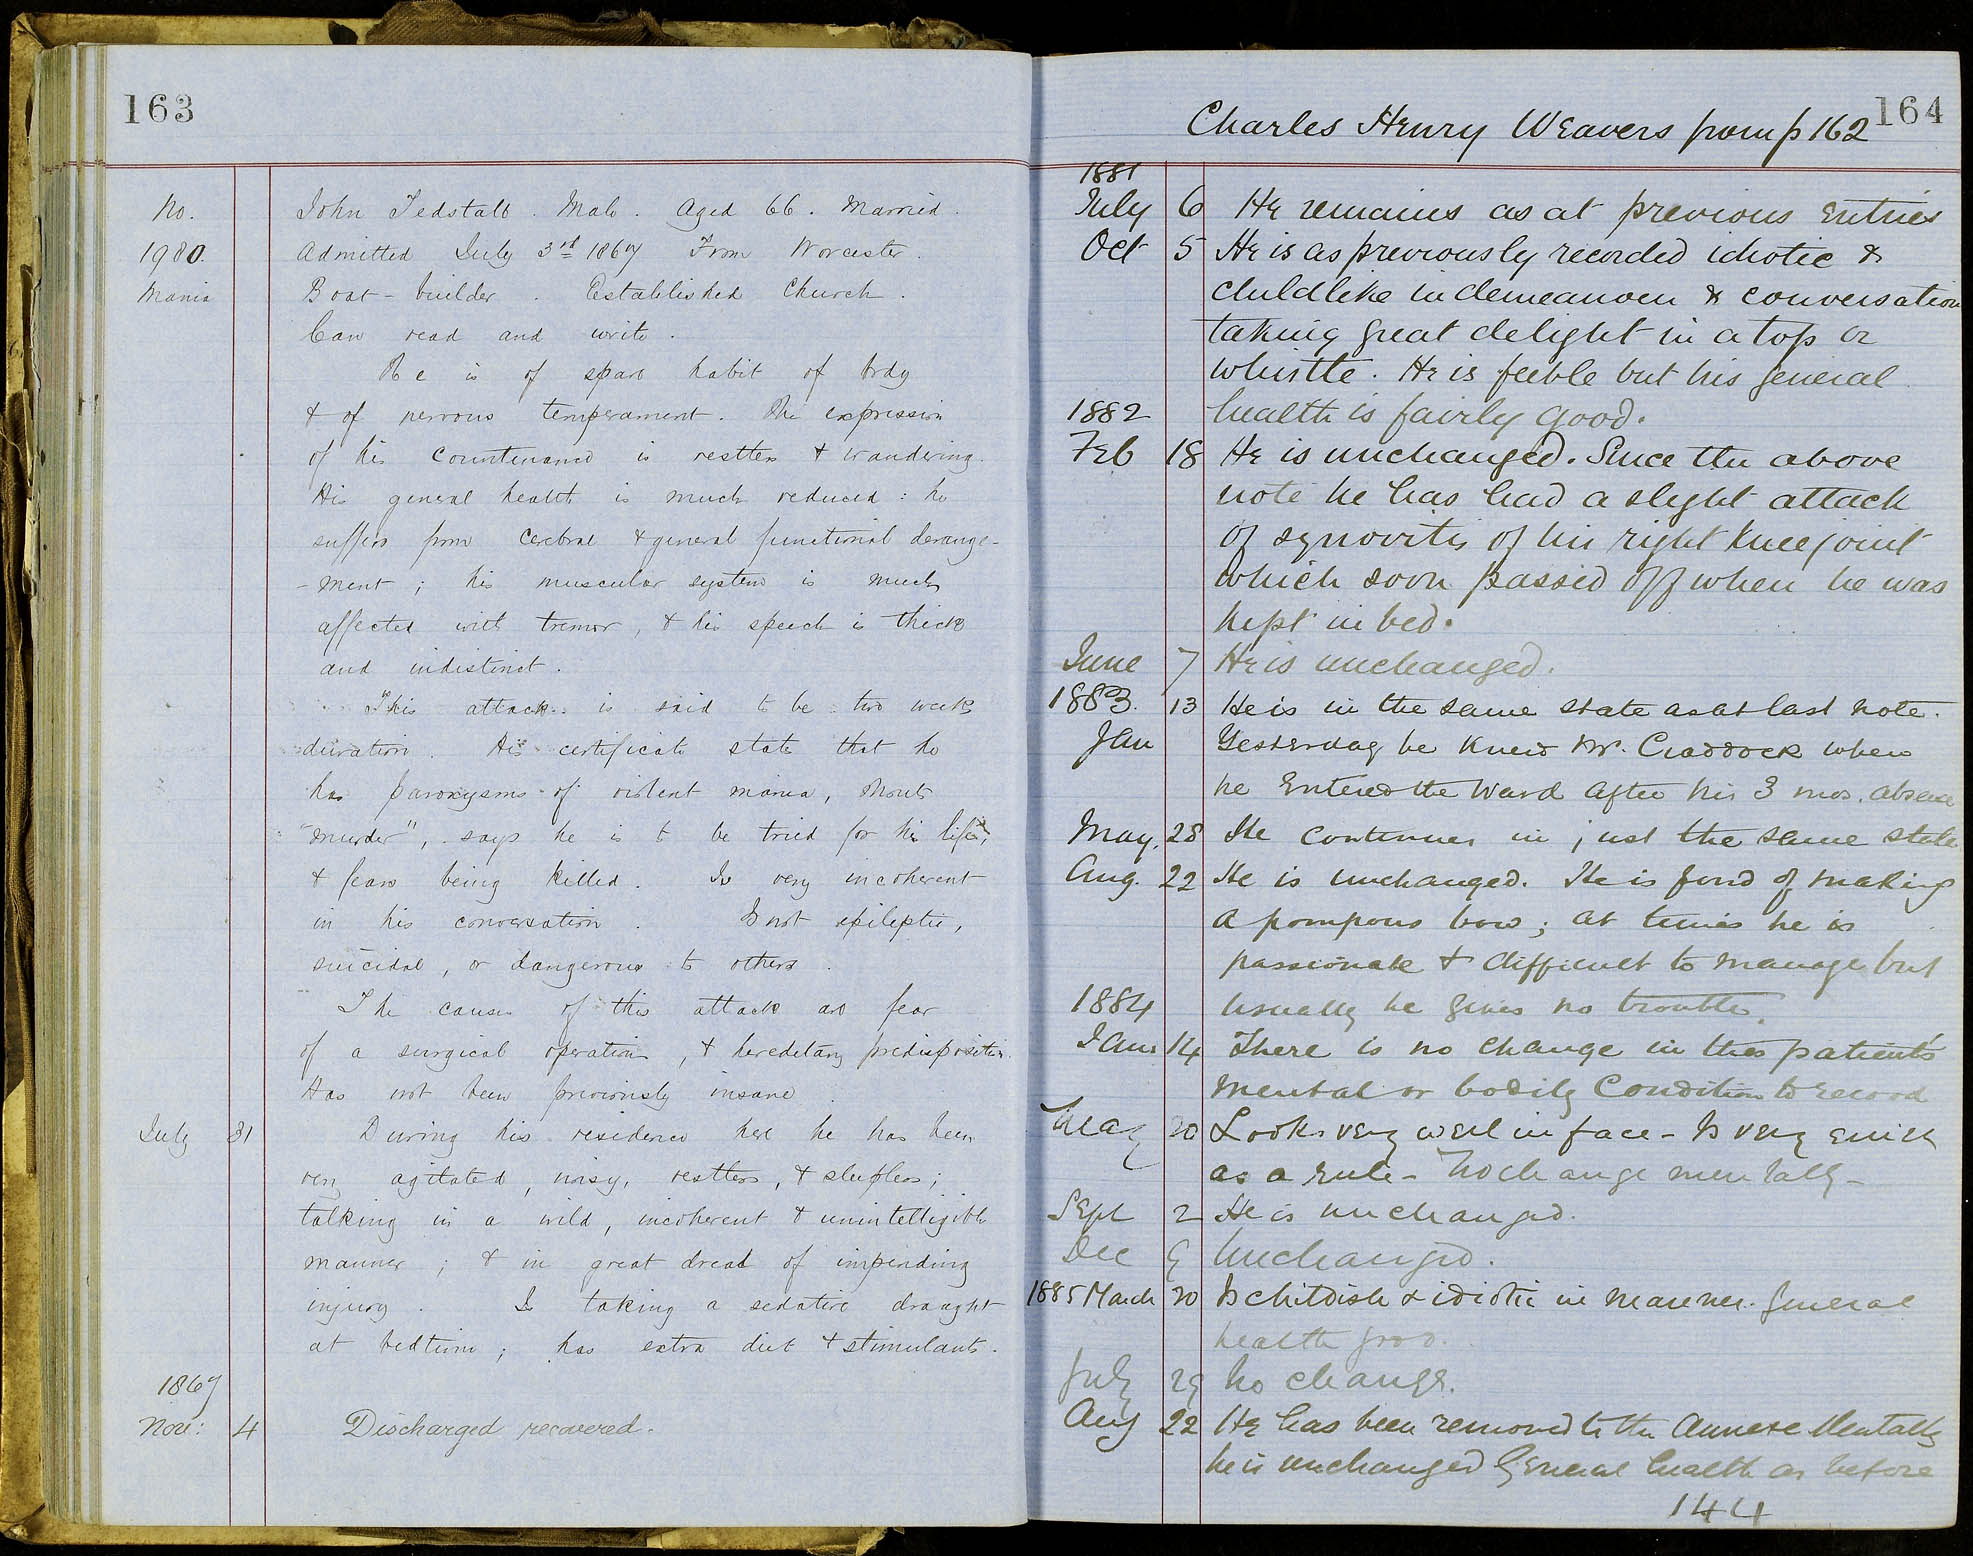 163
No. John Tedstall. Male. Aged 66. Married.
1980. Admitted July 3rd 1867 From Worcester.
Mania Boat-builder. Established Church.
Can read and write.
He is of spare habit of body
& of nervous temperament. The expression
of his countenance is restless & wandering.
His general health is much reduced: he
suffers from cerebral & general functional derange-
-ment; his muscular system is much
affected with tremor, & his speech is thick
and indistinct.
This attack is said to be two weeks
duration. His certificate states that he
has paroxysms of violent mania, shouts
"murder", says he is to be tried for his life,
& fears being killed. Is very incoherent
in his conversation. Is not epileptic,
suicidal, or dangerous to others.
The causes of this attack are fear
of a surgical operation, & hereditary predisposition.
Has not been previously insane.
July 31 During his residence here he has been
very agitated, noisy, restless, & sleepless;
talking in a wild, incoherent & unintelligible
manner; & in great dread of impending
injury. Is taking a sedative draught
at bedtime; has extra diet & stimulants.
1867
Nov: 4 Discharged recovered.
164
Charles Henry Weavers from p 162
1881
July 6 He remains as at previous entries
Oct 5 He is as previously recorded idiotic &
childlike in demeanour & conversation
taking great delight in a top or
whistle. He is feeble but his general
1882 health is fairly good.
Feb 18 He is unchanged. Since the above
note he has had a slight attack
of synovitis of his right knee joint
which soon passed off when he was
kept in bed.
June 7 He is unchanged.
1883. 13 He is in the same state as at last note.
Jan Yesterday he knew Mr. Craddock when
he entered the ward after his 3 mos. absence
May, 28 He continues in just the same state
Aug. 22 He is unchanged. He is fond of making
a pompous bow; at times he is
passionate & difficult to manage but
1884 usually he gives no trouble.
Jan 14 There is no change in this patient's
mental or bodily condition to record
May 20 Looks very well in face - Is very quiet
as a rule - No change mentally -
Sept 2 He is unchanged.
Dec 9 Unchanged.
1885 March 20 Is childish & idiotic in manner. General
health good.
July 29 No change.
Aug 22 He has been removed to the Annexe Mentally
he is unchanged General health as before
144